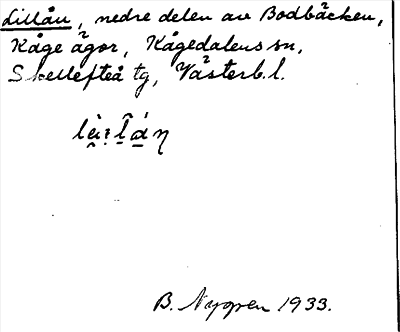 Lillån, nedre delen av Bodbäcken,
Kåge ägor, Kågedalens sn,
Skellefteå tg, Västerb. l.
B. Nygren 1933.